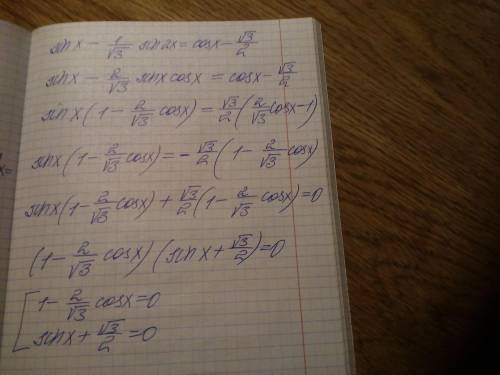 sin x - 1/√3 sin 2x = cos x - √3/2
sin x - 2/√3 sin x cos x = cos x - √3/2
sin x (1 - 2/√3 cos x) = √3/2 (2/√3 cos x - 1)
sin x (1 - 2/√3 cos x) = - √3/2 (1 - 2/√3 cos x)
sin x (1 - 2/√3 cos x) + √3/2 (1 - 2/√3 cos x) = 0
(1 - 2/√3 cos x) (sin x + √3/2) = 0
[ 1 - 2/√3 cos x = 0
sin x + √3/2 = 0